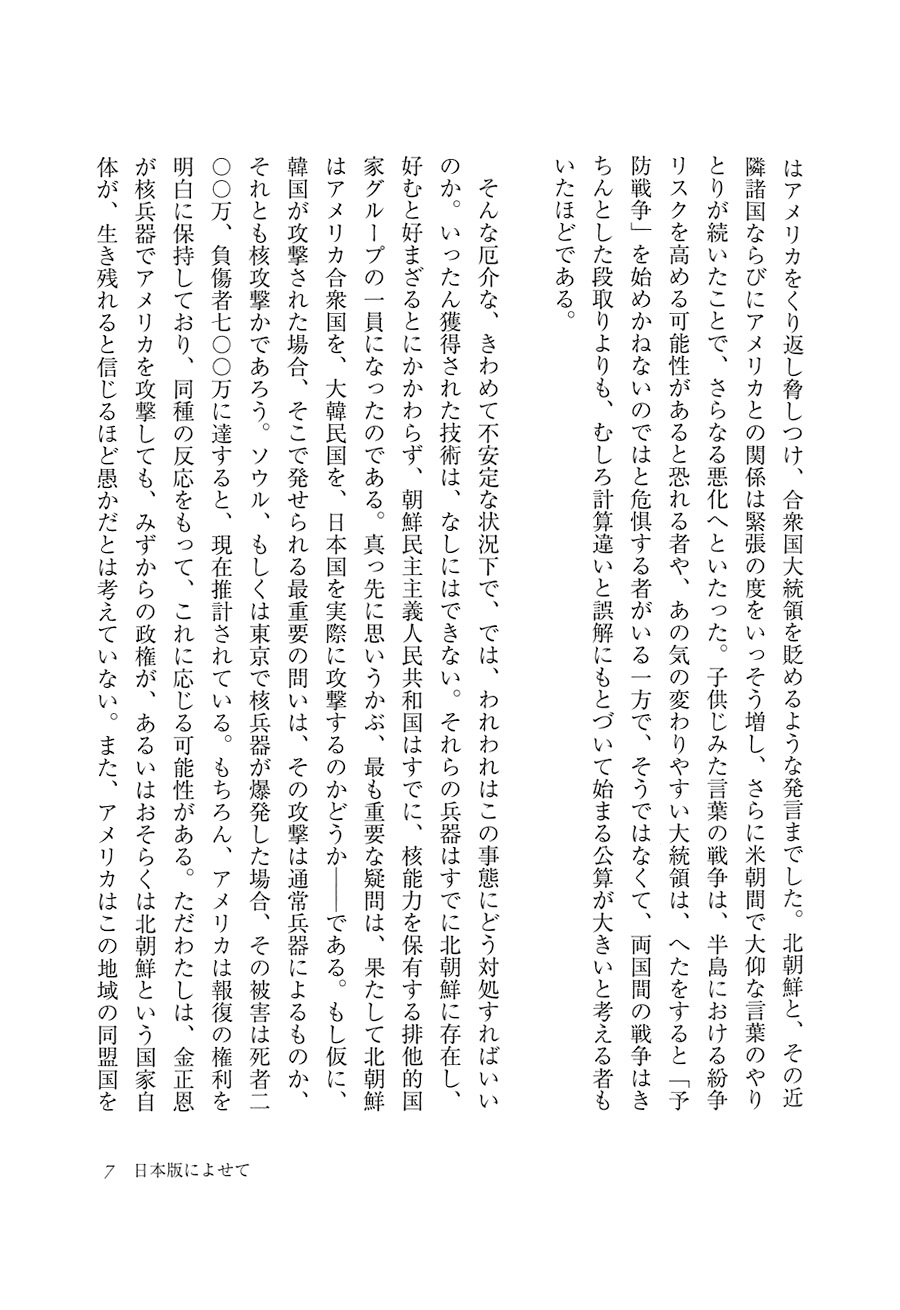 はアメリカをくり返し脅しつけ、合衆国大統領を貶めるような発言までした。北朝鮮と、その近
隣諸国ならびにアメリカとの関係は緊張の度をいっそう増し、さらに米朝間で大仰な言葉のやり
とりが続いたことで、さらなる悪化へといたった。子供じみた言葉の戦争は、半島における紛争
リスクを高める可能性があると恐れる者や、あの気の変わりやすい大統領は、へたをすると「予
防戦争」を始めかねないのではと危惧する者がいる一方で、そうではなくて、両国間の戦争はき
ちんとした段取りよりも、むしろ計算違いと誤解にもとづいて始まる公算が大きいと考える者も
いたほどである。
そんな厄介な、きわめて不安定な状況下で、では、われわれはこの事態にどう対処すればいい
のか。いったん獲得された技術は、なしにはできない。それらの兵器はすでに北朝鮮に存在し、
好むと好まざるとにかかわらず、朝鮮民主主義人民共和国はすでに、核能力を保有する排他的国
家グループの一員になったのである。真っ先に思いうかぶ、最も重要な疑問は、果たして北朝鮮
はアメリカ合衆国を、大韓民国を、日本国を実際に攻撃するのかどうか——である。もし仮に、
韓国が攻撃された場合、そこで発せられる最重要の問いは、その攻撃は通常兵器によるものか、
それとも核攻撃かであろう。ソウル、もしくは東京で核兵器が爆発した場合、その被害は死者二
〇〇万、負傷者七〇〇万に達すると、現在推計されている。もちろん、アメリカは報復の権利を
明白に保持しており、同種の反応をもって、これに応じる可能性がある。ただわたしは、金正恩
が核兵器でアメリカを攻撃しても、みずからの政権が、あるいはおそらくは北朝鮮という国家自
体が、生き残れると信じるほど愚かだとは考えていない。また、アメリカはこの地域の同盟国を
7 日本版によせて